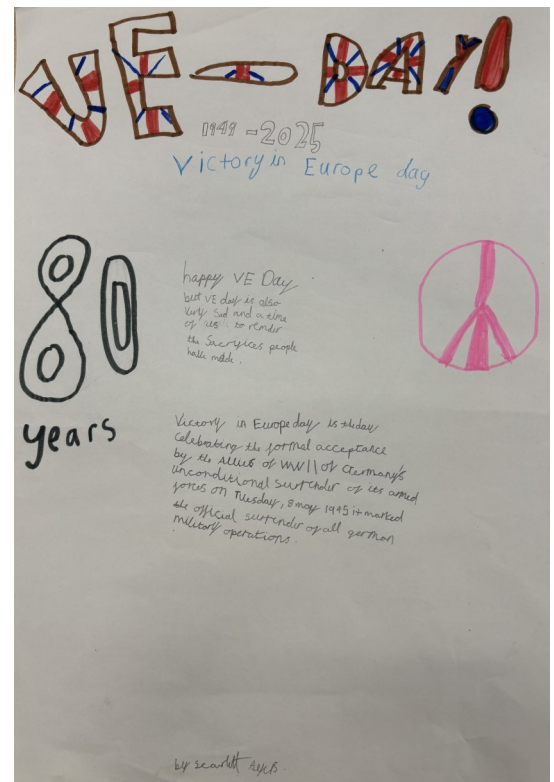 VE-DAY!
1949-2025
Victory in Europe day
80
years
happy VE Day
but VE day is also
very sad and a time
of us to render
the Sacryices people
have made.
Victory in Europe day is the day
Celebrating the formal acceptance
by the Allies of WWII of Germany's
unconditional surrender of its armed
forces on Tuesday, 8 may 1945 it marked
the official surrender of all german
military operations.
by scarlett